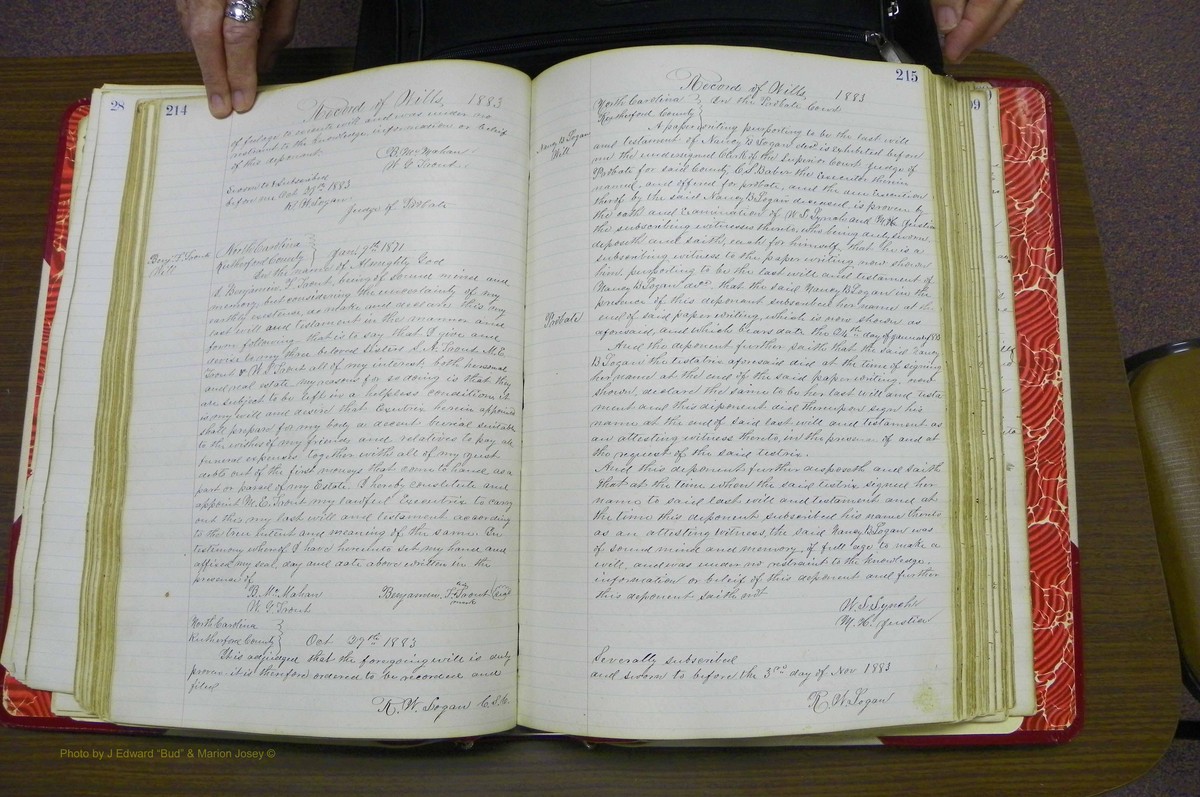 28
214
Record of Wills, 1883
of full age to execute a will and was under no
restraint to the knowledge, information or beleif
of this deponent.
B McMahan
W. G. Trout
Sworn to & Subscribed
before me Oct 27th 1883
R W Logan
Judge of Probate
Benj. F. Trout
Will
North Carolina
Rutherford County
Jan'y 9th 1871
In the name of Almighty God
I Benjamin F. Trout, being of sound mind and
memory, but considering the uncertainty of my
earthly existence, do make and declare this my
last will and testament in the manner and
form following, that is to say that I give and
devise to my three beloved Sisters S. A. Trout, M. E.
Trout & W. J. Trout all of my interest, both personal
and real estate. my reasons for so doing is that they
are subject to be left in a helpless condition. it
is my will and desire that Executrix herein appointed
shall prepare for my body a decent burial suitable
to the wishes of my friends and relatives to pay all
funeral expenses together with all of my just
debts out of the first moneys that come to hand as a
part or parcel of my Estate. I hereby constitute and
appoint M. E. Trout my lawful Executrix to carry
out this my last will and testament according
to the true intent and meaning of the same. In
testimony whereof I have hereunto set my hand and
affixed my seal, day and date above written in the
presence of
B. McMahan
W. G. Trout
Benjamin F. his Trout (Seal)
mark
North Carolina
Rutherford County
Oct 27th 1883
It is adjudged that the foregoing will is duly
proven it is therefore ordered to be recorded and
filed
R. W. Logan C.S.C.
215
Record of Wills, 1883
North Carolina
Rutherford County
In the Probate Court
Nancy B. Logan
Will
A paper writing purporting to be the last will
and testament of Nancy B Logan decd is exhibited before
me the undersigned Clerk of the Superior Court Judge of
Probate for said County. C. L. Baber the executor therein
named, and offered for probate, and the due execution
thereof by the said Nancy B Logan deceased is proven by
the oath and examination of W. S. Lynch and M. H. Justice
the subscribing witnesses thereto, who being duly sworn
deposeth and saith, each for himself, that he is a
subscribing witness to the paper writing now shown
him, purporting to be the last will and testament of
Nancy B Logan decd. that the said Nancy B Logan in the
presence of this deponent subscribed her name at the
Probate
end of said paper writing, which is now shown as
aforesaid, and which bears date the 24th day of January 1883
And the deponent further saith that the said Nancy
B Logan the testatrix aforesaid did at the time of signing
her name at the end of the said paper writing, now
shown, declare the same to be her last will and testa
ment and this deponent did thereupon sign his
name at the end of said last will and testament as
an attesting witness thereto, in the presence of and at
the request of the said testatrix.
And this deponent further disposeth and saith
that at the time when the said testrix signed her
name to said last will and testament and at
the time this deponent subscribed his name thereto
as an attesting witness, the said Nancy B Logan was
of sound mind and memory, of full age to make a
will, and was under no restraint to the knowledge,
information or beleif of this deponent and further
this deponent saith not
W. S. Lynch
M. H. Justice
Severally subscribed
and sworn to before the 3rd day of Nov 1883
R. W. Logan
09
Photo by J Edward "Bud" & Marion Josey ©